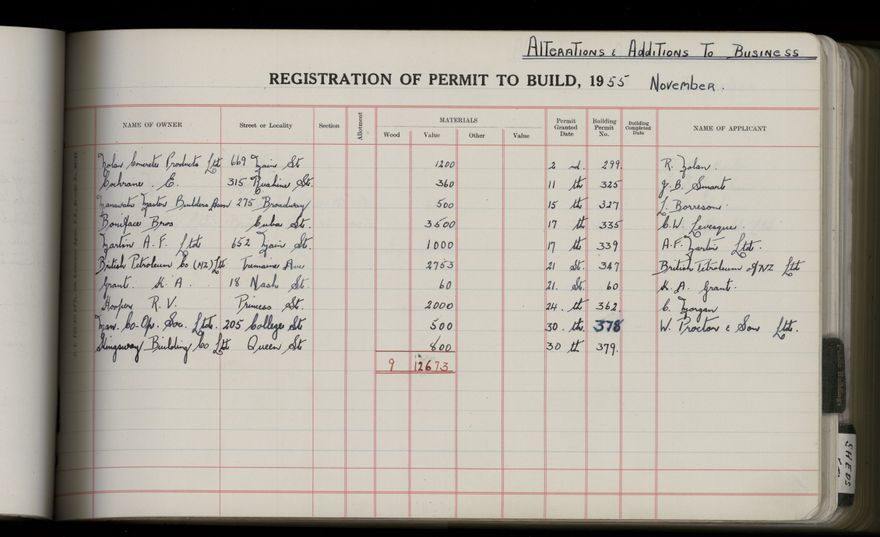 Alterations & Additions To Business
REGISTRATION OF PERMIT TO BUILD, 1955 November.
NAME OF OWNER Street or Locality Section Allotment MATERIALS Wood Value Other Value Permit Granted Date Building Permit No. Building Completed Date NAME OF APPLICANT
Nolan Concrete Products Ltd 669 Main St. 1200 2 nd. 299. R. Nolan.
Cochrane. E. 315 Ruahine St. 360 11 th 325 J. B. Smart
Manawatu Master Builders Assn 275 Broadway 500 15 th 327 L. Borreson.
Boniface Bros Cuba St. 3500 17 th 335 C. W. Levesque.
Martin A. F. Ltd 652 Main St. 1000 17 th 339 A. F. Martin Ltd.
British Petroleum Co (NZ) Ltd Tremaine Ave 2753 21 St. 347 British Petroleum of NZ Ltd
Grant. K. A. 18 Nash St. 60 21. St. 60 K. A. Grant.
Hooper R. V. Princess St. 2000 24. th 362 C. Morgan
Man. Co-Op. Soc. Ltd. 205 College St 500 30. th. 378 W. Procton & Son Ltd.
Kingsway Building Co Ltd Queen St 800 30 th 379.
9 12673
SHEDS